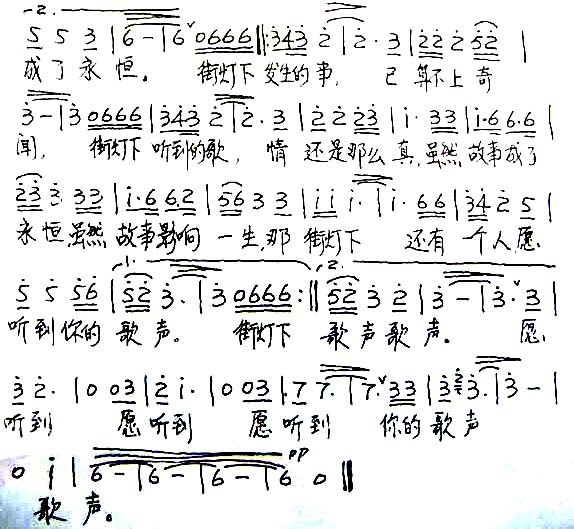 -2.
5 5 3 | 6 - | 6 ˅ 0666 ‖: 343 2 | 2 · 3 | 22 2 52 |
成了永恒。 街灯下 发生的事, 已 算不上奇
3 - | 3 0666 | 343 2 | 2 · 3 | 2 2 23 | i · 33 | i·6 6·6 |
闻, 街灯下 听到的歌, 情 还是那么真,虽然 故事成了
23 3 33 | i·6 6.2 | 56 3 3 | i i i · | i · 66 | 34 2 5 |
永恒,虽然 故事影响 一生,那 街灯下 还有 一个人愿
1. 2.
5 5 56 | 52 3 · | 3 0666 :‖ 52 3 2 | 3 - | 3 · ˅ 3 |
听到你的 歌声。 街灯下 歌声歌声。 愿
3 2 · | 0 03 | 2 i · | 0 03 | 7 7 · | 7 · ˅ 33 | 3 3 · | 3 - |
听到 愿听到 愿听到 你的歌声
pp
0 i | 6 - | 6 - | 6 - | 6 0 ‖
歌声。